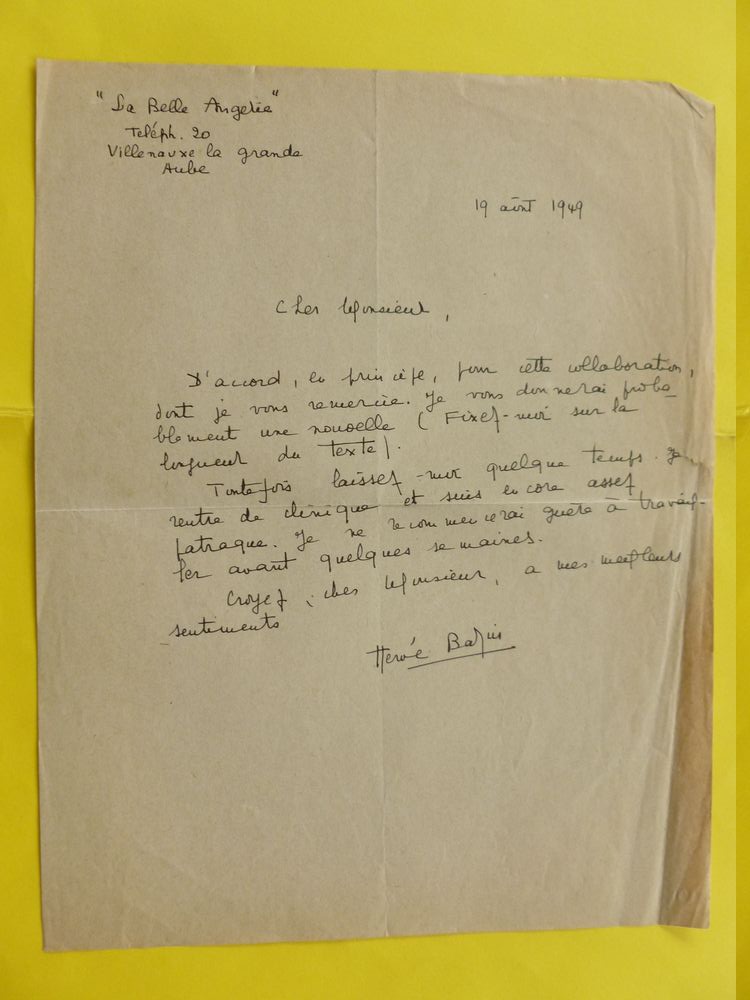 "La Belle Angerie"
Teléph. 20
Villenauxe la grande
Aube
19 août 1949
Cher Monsieur,
D'accord, en principe, pour cette collaboration,
dont je vous remercie. Je vous donnerai proba-
blement une nouvelle (Fixez-moi sur la
longueur du texte).
Toutefois laissez-moi quelque temps. Je
rentre de clinique et suis encore assez
patraque. Je ne recommencerai guère à travail-
ler avant quelques semaines.
Croyez, cher Monsieur, a mes meilleurs
sentiments
Hervé Bazin